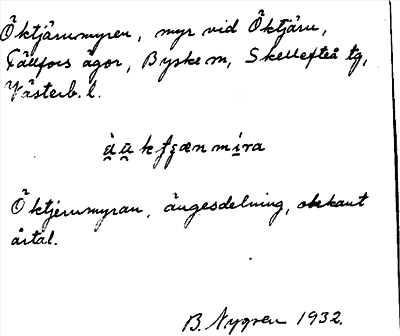 Öktjärnmyren, myr vid Öktjärn,
Fällfors ägor, Byske sn, Skellefteå tg,
Västerb. l.
mira
Öktjernmyran, ängesdelning, okänt
årtal.
B. Nygren 1932.